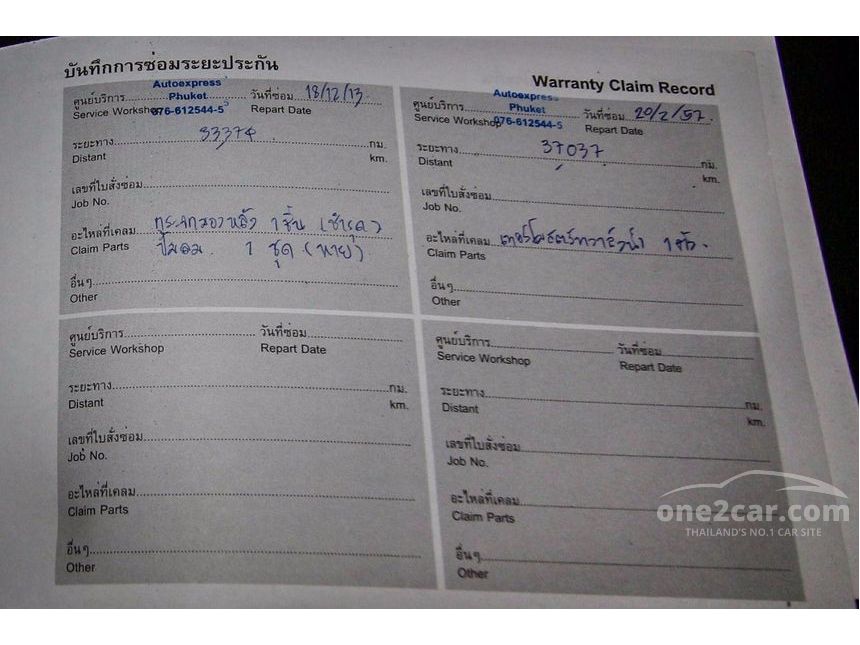 บันทึกการซ่อมระยะประกัน
Warranty Claim Record
Autoexpress
Phuket
076-612544-5
ศูนย์บริการ วันที่ซ่อม 18/12/13
Service Workshop Repart Date
ระยะทาง 33374 กม.
Distant km.
เลขที่ใบสั่งซ่อม
Job No.
อะไหล่ที่เคลม กระจกมองหลัง 1 ชิ้น (ชำรุด)
Claim Parts 1 ชุด (หาย)
อื่นๆ
Other
Autoexpress
Phuket
076-612544-5
ศูนย์บริการ วันที่ซ่อม 20/2/57
Service Workshop Repart Date
ระยะทาง 37037 กม.
Distant km.
เลขที่ใบสั่งซ่อม
Job No.
อะไหล่ที่เคลม 1 ตัว
Claim Parts
อื่นๆ
Other
ศูนย์บริการ วันที่ซ่อม
Service Workshop Repart Date
ระยะทาง กม.
Distant km.
เลขที่ใบสั่งซ่อม
Job No.
อะไหล่ที่เคลม
Claim Parts
อื่นๆ
Other
ศูนย์บริการ วันที่ซ่อม
Service Workshop Repart Date
ระยะทาง กม.
Distant km.
เลขที่ใบสั่งซ่อม
Job No.
อะไหล่ที่เคลม
Claim Parts
อื่นๆ
Other
one2car.com
THAILAND'S NO.1 CAR SITE